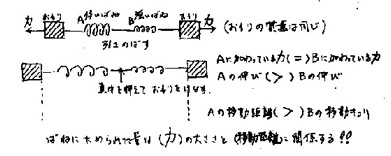 力 おもり A弱いばね B強いばね おもり 力 (おもりの質量は同じ)
引きのばす
Aにかわっている力(=)Bにかわっている力
Aの伸び(>)Bの伸び
真中を押えておもりをはなす
Aの移動距離(>)Bの移動キョリ
ばねにためられた は(力)の大きさと(移動距離)に関係する!!